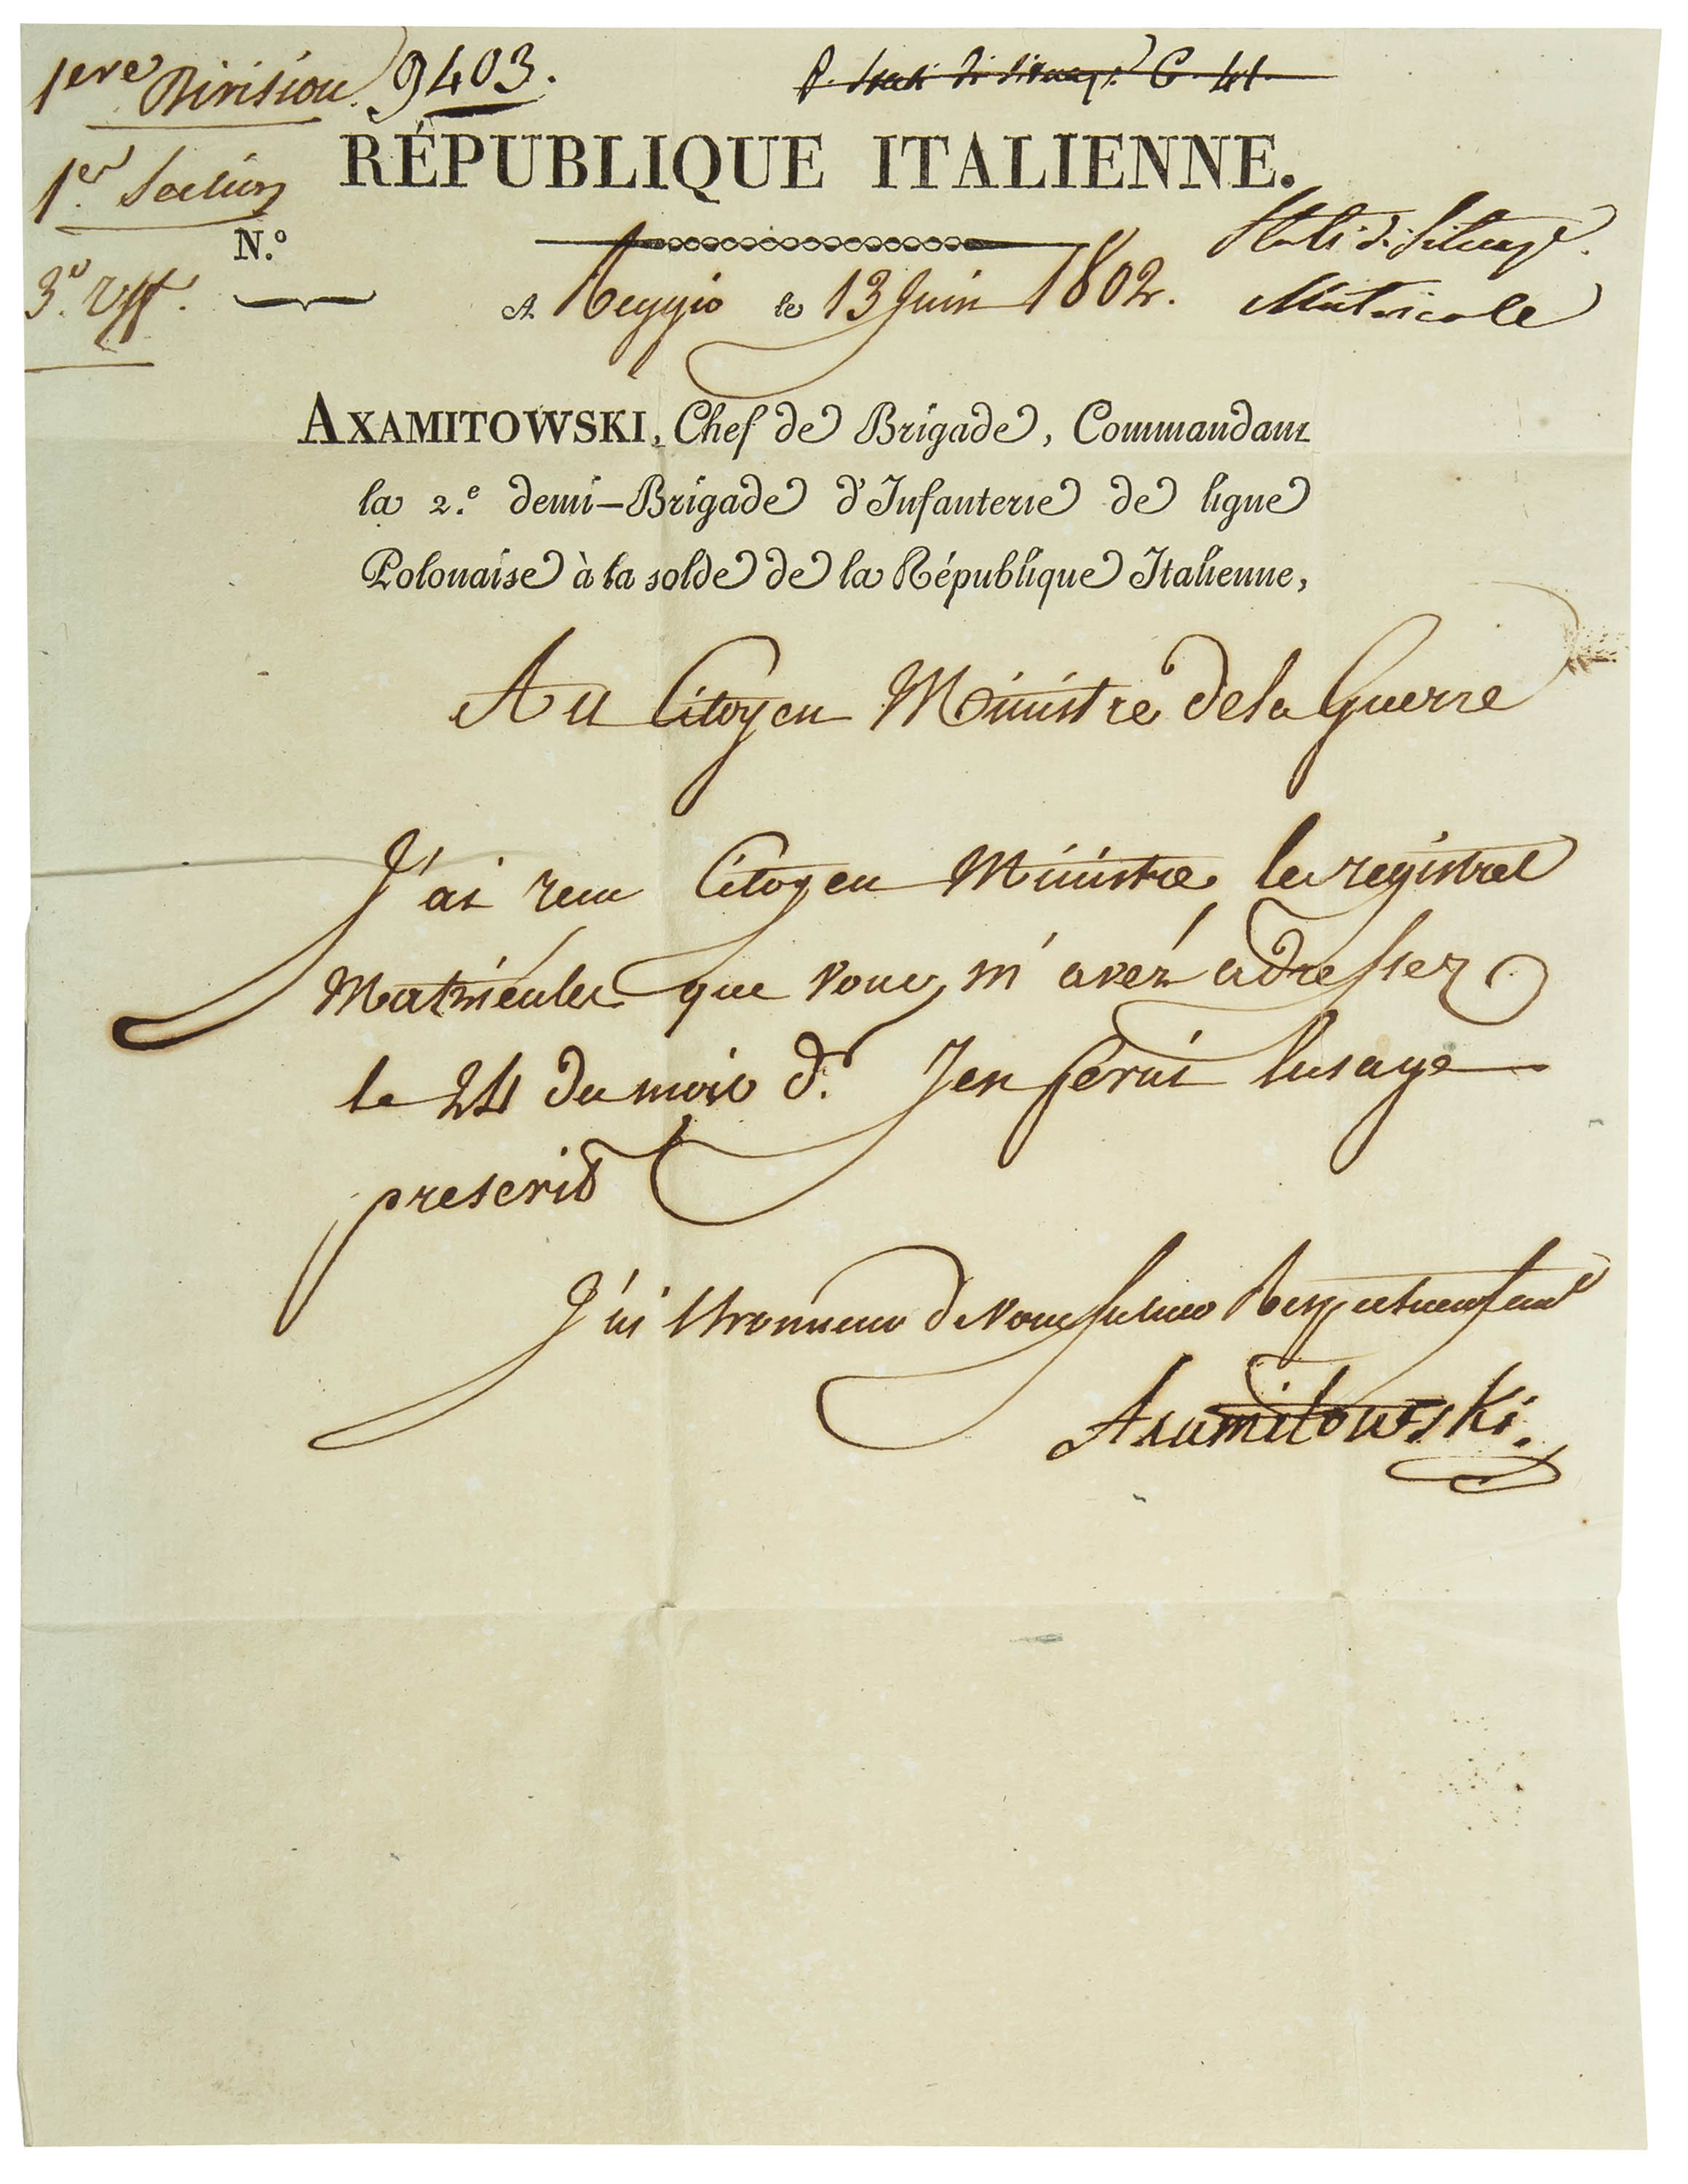 1ere Division 9403.
1er Section
RÉPUBLIQUE ITALIENNE.
N.º
3.e Uff.
Stati di Situaz.e
Matricole
A Reggio le 13 Juin 1802.
AXAMITOWSKI, Chef de Brigade, Commandant
la 2.e demi-Brigade d'Infanterie de ligne
Polonaise à la solde de la République Italienne,
Au Citoyen Ministre de la Guerre
J'ai recu Citoyen Ministre, les registres
Matricules que vous m'avez adresser
le 24 du mois d.r J'en ferai lusage
prescrit
J'ai lhonneur de vous saluer Respectueusement
Axamitowski.